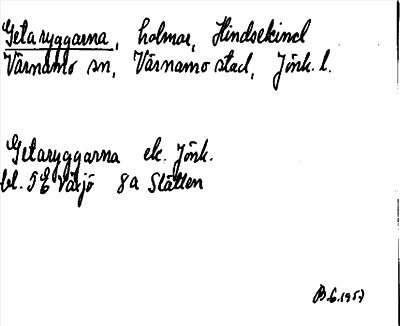 Getaryggarna, holmar, Hindsekind
Värnamo sn, Värnamo stad, Jönk. l.
Getaryggarna ek. Jönk.
bl. 5E Växjö 8a Slätten
B.G. 1957